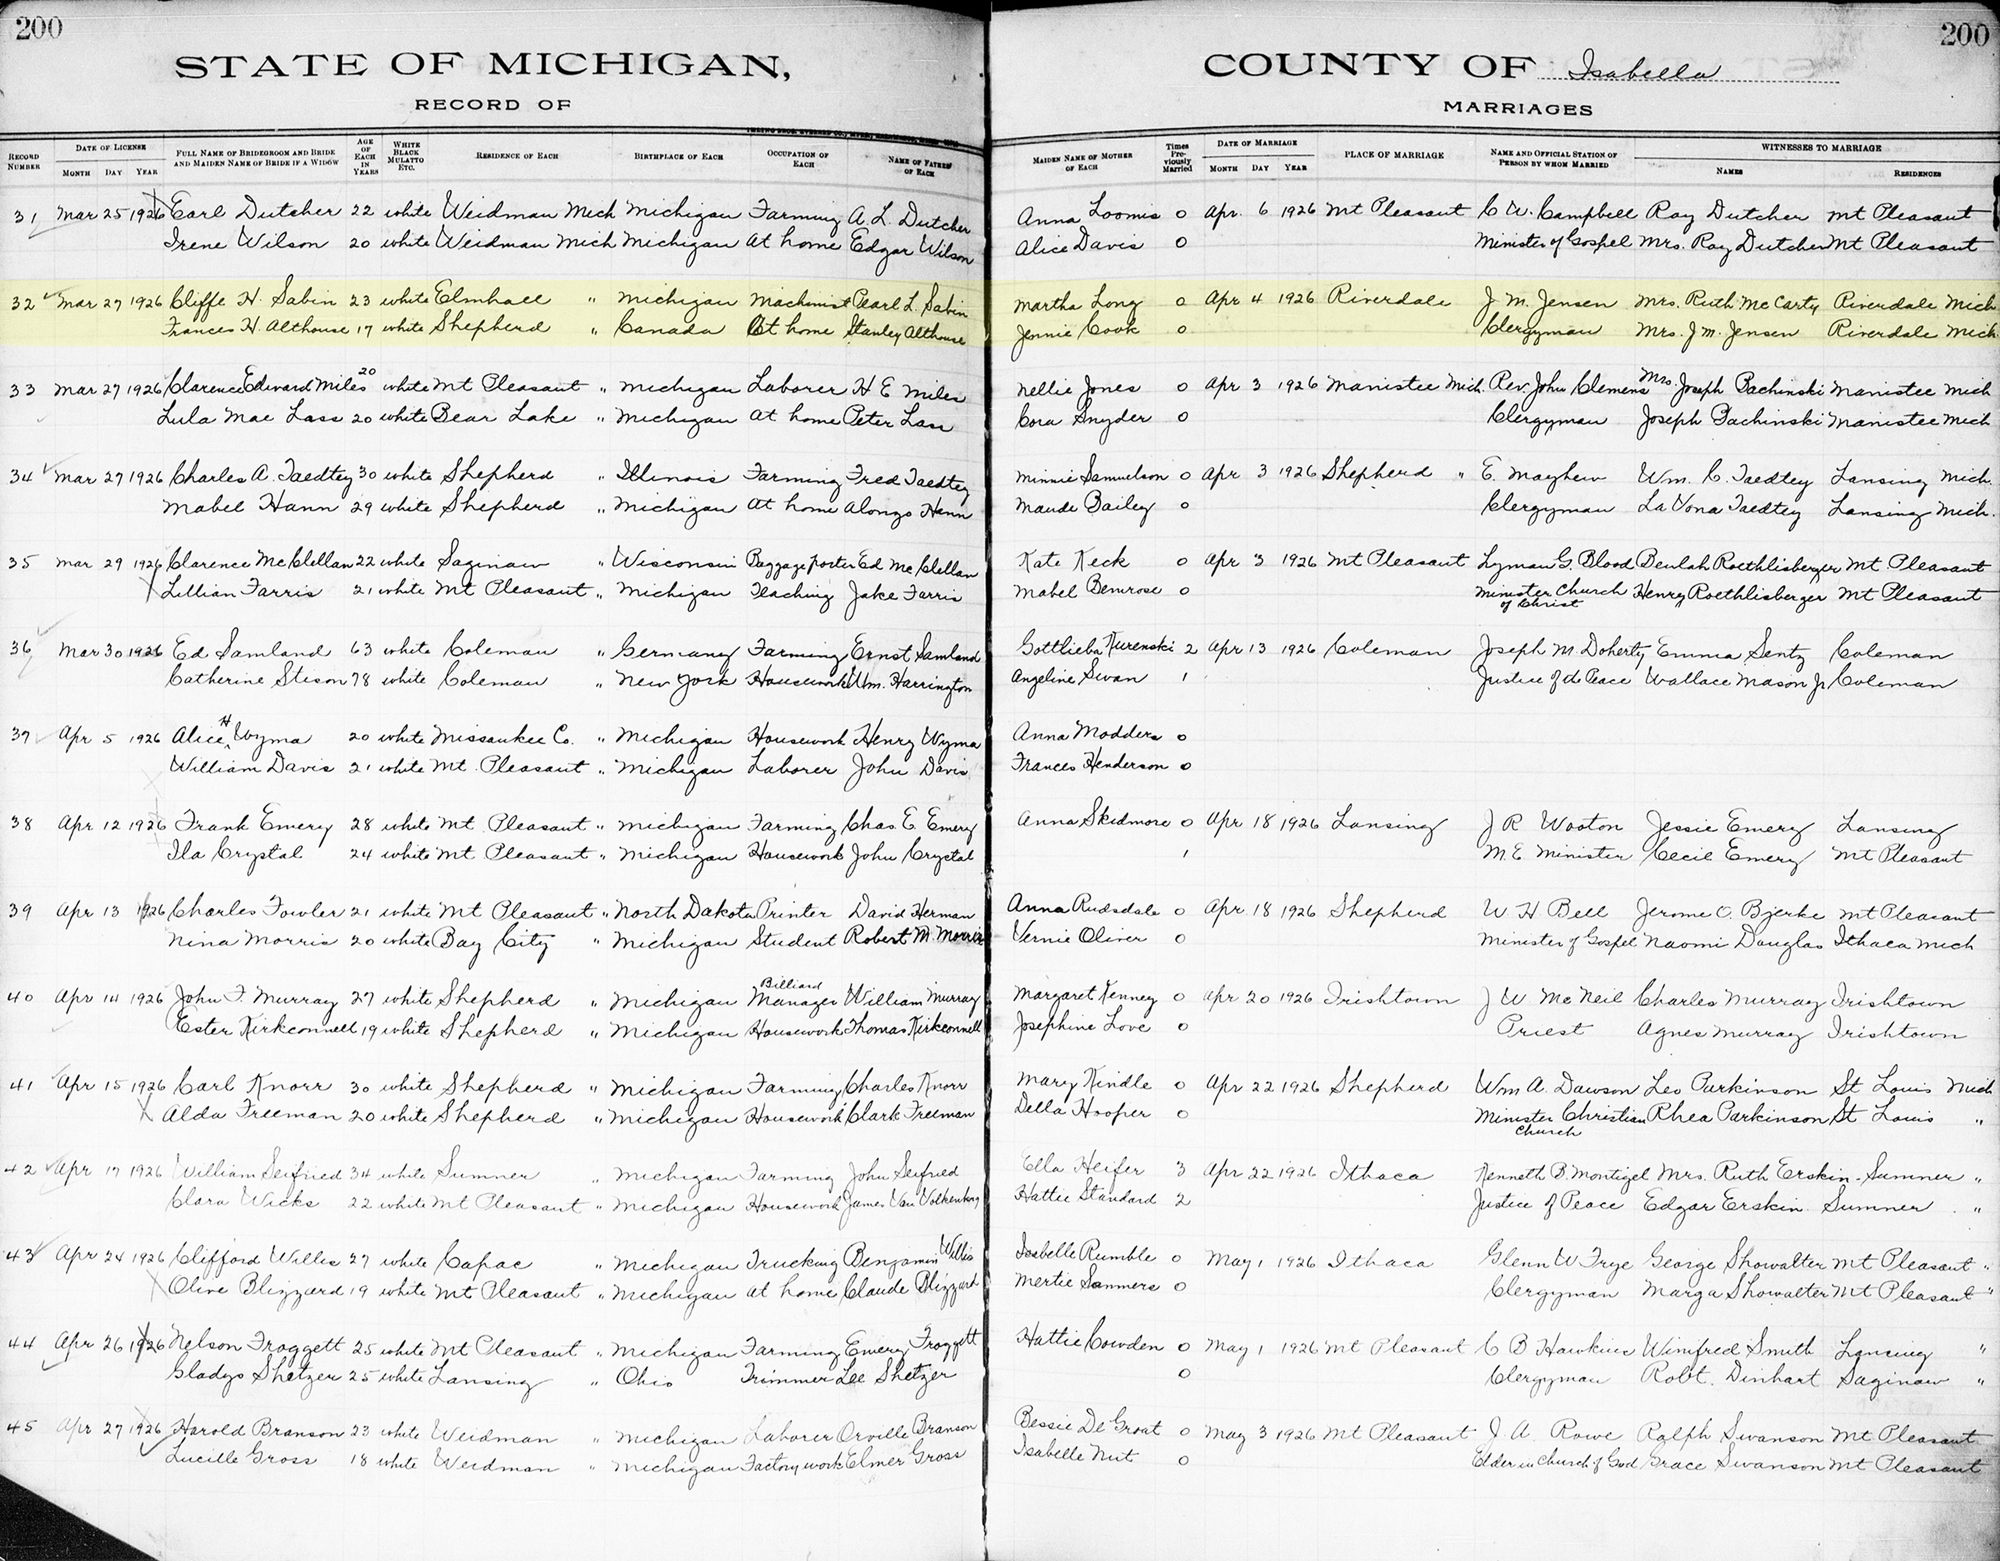 200
200
STATE OF MICHIGAN,
COUNTY OF Isabella
RECORD OF
MARRIAGES
RECORD NUMBER
DATE OF LICENSE
MONTH DAY YEAR
FULL NAME OF BRIDEGROOM AND BRIDE AND MAIDEN NAME OF BRIDE IF A WIDOW
AGE OF EACH IN YEARS
WHITE BLACK MULATTO ETC.
RESIDENCE OF EACH
BIRTHPLACE OF EACH
OCCUPATION OF EACH
NAME OF FATHER OF EACH
MAIDEN NAME OF MOTHER OF EACH
Times Pre-viously Married
DATE OF MARRIAGE
MONTH DAY YEAR
PLACE OF MARRIAGE
NAME AND OFFICIAL STATION OF PERSON BY WHOM MARRIED
WITNESSES TO MARRIAGE
NAMES RESIDENCES
31 Mar 25 1926 Earl Dutcher 22 white Weidman Mich Michigan Farming A. L. Dutcher Anna Loomis 0 Apr. 6 1926 Mt Pleasant C W. Campbell Ray Dutcher Mt Pleasant
Irene Wilson 20 white Weidman Mich Michigan At home Edgar Wilson Alice Davis 0 Minister of Gospel Mrs. Ray Dutcher Mt Pleasant
32 Mar 27 1926 Cliffe H. Sabin 23 white Elmhall " Michigan Machinist Pearl L. Sabin Martha Long 0 Apr 4 1926 Riverdale J. M. Jensen Mrs. Ruth McCarty Riverdale Mich
Frances H. Althouse 17 white Shepherd " Canada At home Stanley Althouse Jennie Cook 0 Clergyman Mrs. J. M. Jensen Riverdale Mich.
33 Mar 27 1926 Clarence Edward Miles 20 white Mt Pleasant " Michigan Laborer H E Miles Nellie Jones 0 Apr 3 1926 Manistee Mich. Rev. John Clemens Mrs. Joseph Pachinski Manistee Mich
Lula Mae Lass 20 white Bear Lake " Michigan At home Peter Lass Cora Snyder 0 Clergyman Joseph Pachinski Manistee Mich
34 Mar 27 1926 Charles A. Taedtey 30 white Shepherd " Illinois Farming Fred Taedtey Minnie Samuelson 0 Apr 3 1926 Shepherd " E. Mayhew Wm. C. Taedtey Lansing Mich.
Mabel Hann 29 white Shepherd " Michigan At home Alonzo Hann Maude Bailey 0 Clergyman La Vona Taedtey Lansing Mich.
35 Mar 29 1926 Clarence McClellan 22 white Saginaw " Wisconsin Baggage porter Ed McClellan Kate Keck 0 Apr 3 1926 Mt Pleasant Lyman G. Blood Beulah Roethlisberger Mt Pleasant
Lillian Farris 21 white Mt Pleasant " Michigan Teaching Jake Farris Mabel Bemrose 0 Minister Church of Christ Henry Roethlisberger Mt Pleasant
36 Mar 30 1926 Ed Samland 63 white Coleman " Germany Farming Ernst Samland Gottlieba 2 Apr 13 1926 Coleman Joseph M. Doherty Emma Sentz Coleman
Catherine Stison 78 white Coleman " New York Housework Wm. Harrington Angeline Swan 1 Justice of the Peace Wallace Mason Jr Coleman
37 Apr 5 1926 Alice H Wyma 20 white Missaukee Co. " Michigan Housework Henry Wyma Anna Modders 0
William Davis 21 white Mt. Pleasant " Michigan Laborer John Davis Frances Henderson 0
38 Apr 12 1926 Frank Emery 28 white Mt Pleasant " Michigan Farming Chas. E. Emery Anna Skidmore 0 Apr 18 1926 Lansing J R Wooton Jessie Emery Lansing
Ila Crystal 24 white Mt Pleasant " Michigan Housework John Crystal 1 M.E Minister Cecil Emery Mt Pleasant
39 Apr 13 1926 Charles Fowler 21 white Mt Pleasant " North Dakota Printer David Herman Anna Rudsdale 0 Apr 18 1926 Shepherd W H Bell Jerome O. Bjerke Mt Pleasant
Nina Morris 20 white Bay City " Michigan Student Robert M. Morris Vernie Oliver 0 Minister of Gospel Naomi Douglas Ithaca Mich
40 Apr 14 1926 John F. Murray 27 white Shepherd " Michigan Billiard Manager William Murray Margaret Kenney 0 Apr 20 1926 Irishtown J W McNeil Charles Murray Irishtown
Ester Kirkconnell 19 white Shepherd " Michigan Housework Thomas Kirkconnell Josephine Love 0 Priest Agnes Murray Irishtown
41 Apr 15 1926 Carl Knorr 30 white Shepherd " Michigan Farming Charles Knorr Mary Kindle 0 Apr 22 1926 Shepherd Wm A. Dawson Leo Parkinson St Louis Mich
Alda Freeman 20 white Shepherd " Michigan Housework Clark Freeman Della Hooper 0 Minister Christian Church Rhea Parkinson St Louis "
42 Apr 17 1926 William Seifried 34 white Sumner " Michigan Farming John Seifried Ella Heifer 3 Apr 22 1926 Ithaca Kenneth B. Montigel Mrs. Ruth Erskin Sumner "
Clara Wicks 22 white Mt Pleasant " Michigan Housework James Van Volkenburg Hattie Standard 2 Justice of Peace Edgar Erskin Sumner "
43 Apr 24 1926 Clifford Willis 27 white Capac " Michigan Trucking Benjamin Willis Isabelle Rumble 0 May 1 1926 Ithaca Glenn W Frye George Showalter Mt Pleasant "
Olive Blizzard 19 white Mt Pleasant " Michigan At home Claude Blizzard Mertie Sammers 0 Clergyman Marga Showalter Mt Pleasant "
44 Apr 26 1926 Nelson Froggett 25 white Mt Pleasant " Michigan Farming Emery Froggett Hattie Cowden 0 May 1 1926 Mt Pleasant C B Hawkins Winifred Smith Lansing "
Gladys Shetzer 25 white Lansing " Ohio Trimmer Lee Shetzer 0 Clergyman Robt. Dinhart Saginaw "
45 Apr 27 1926 Harold Branson 23 white Weidman " Michigan Laborer Orville Branson Bessie De Groat 0 May 3 1926 Mt Pleasant J. A. Rowe Ralph Swanson Mt Pleasant
Lucille Gross 18 white Weidman " Michigan Factory work Elmer Gross Isabelle Nut 0 Elder in Church of God Grace Swanson Mt Pleasant